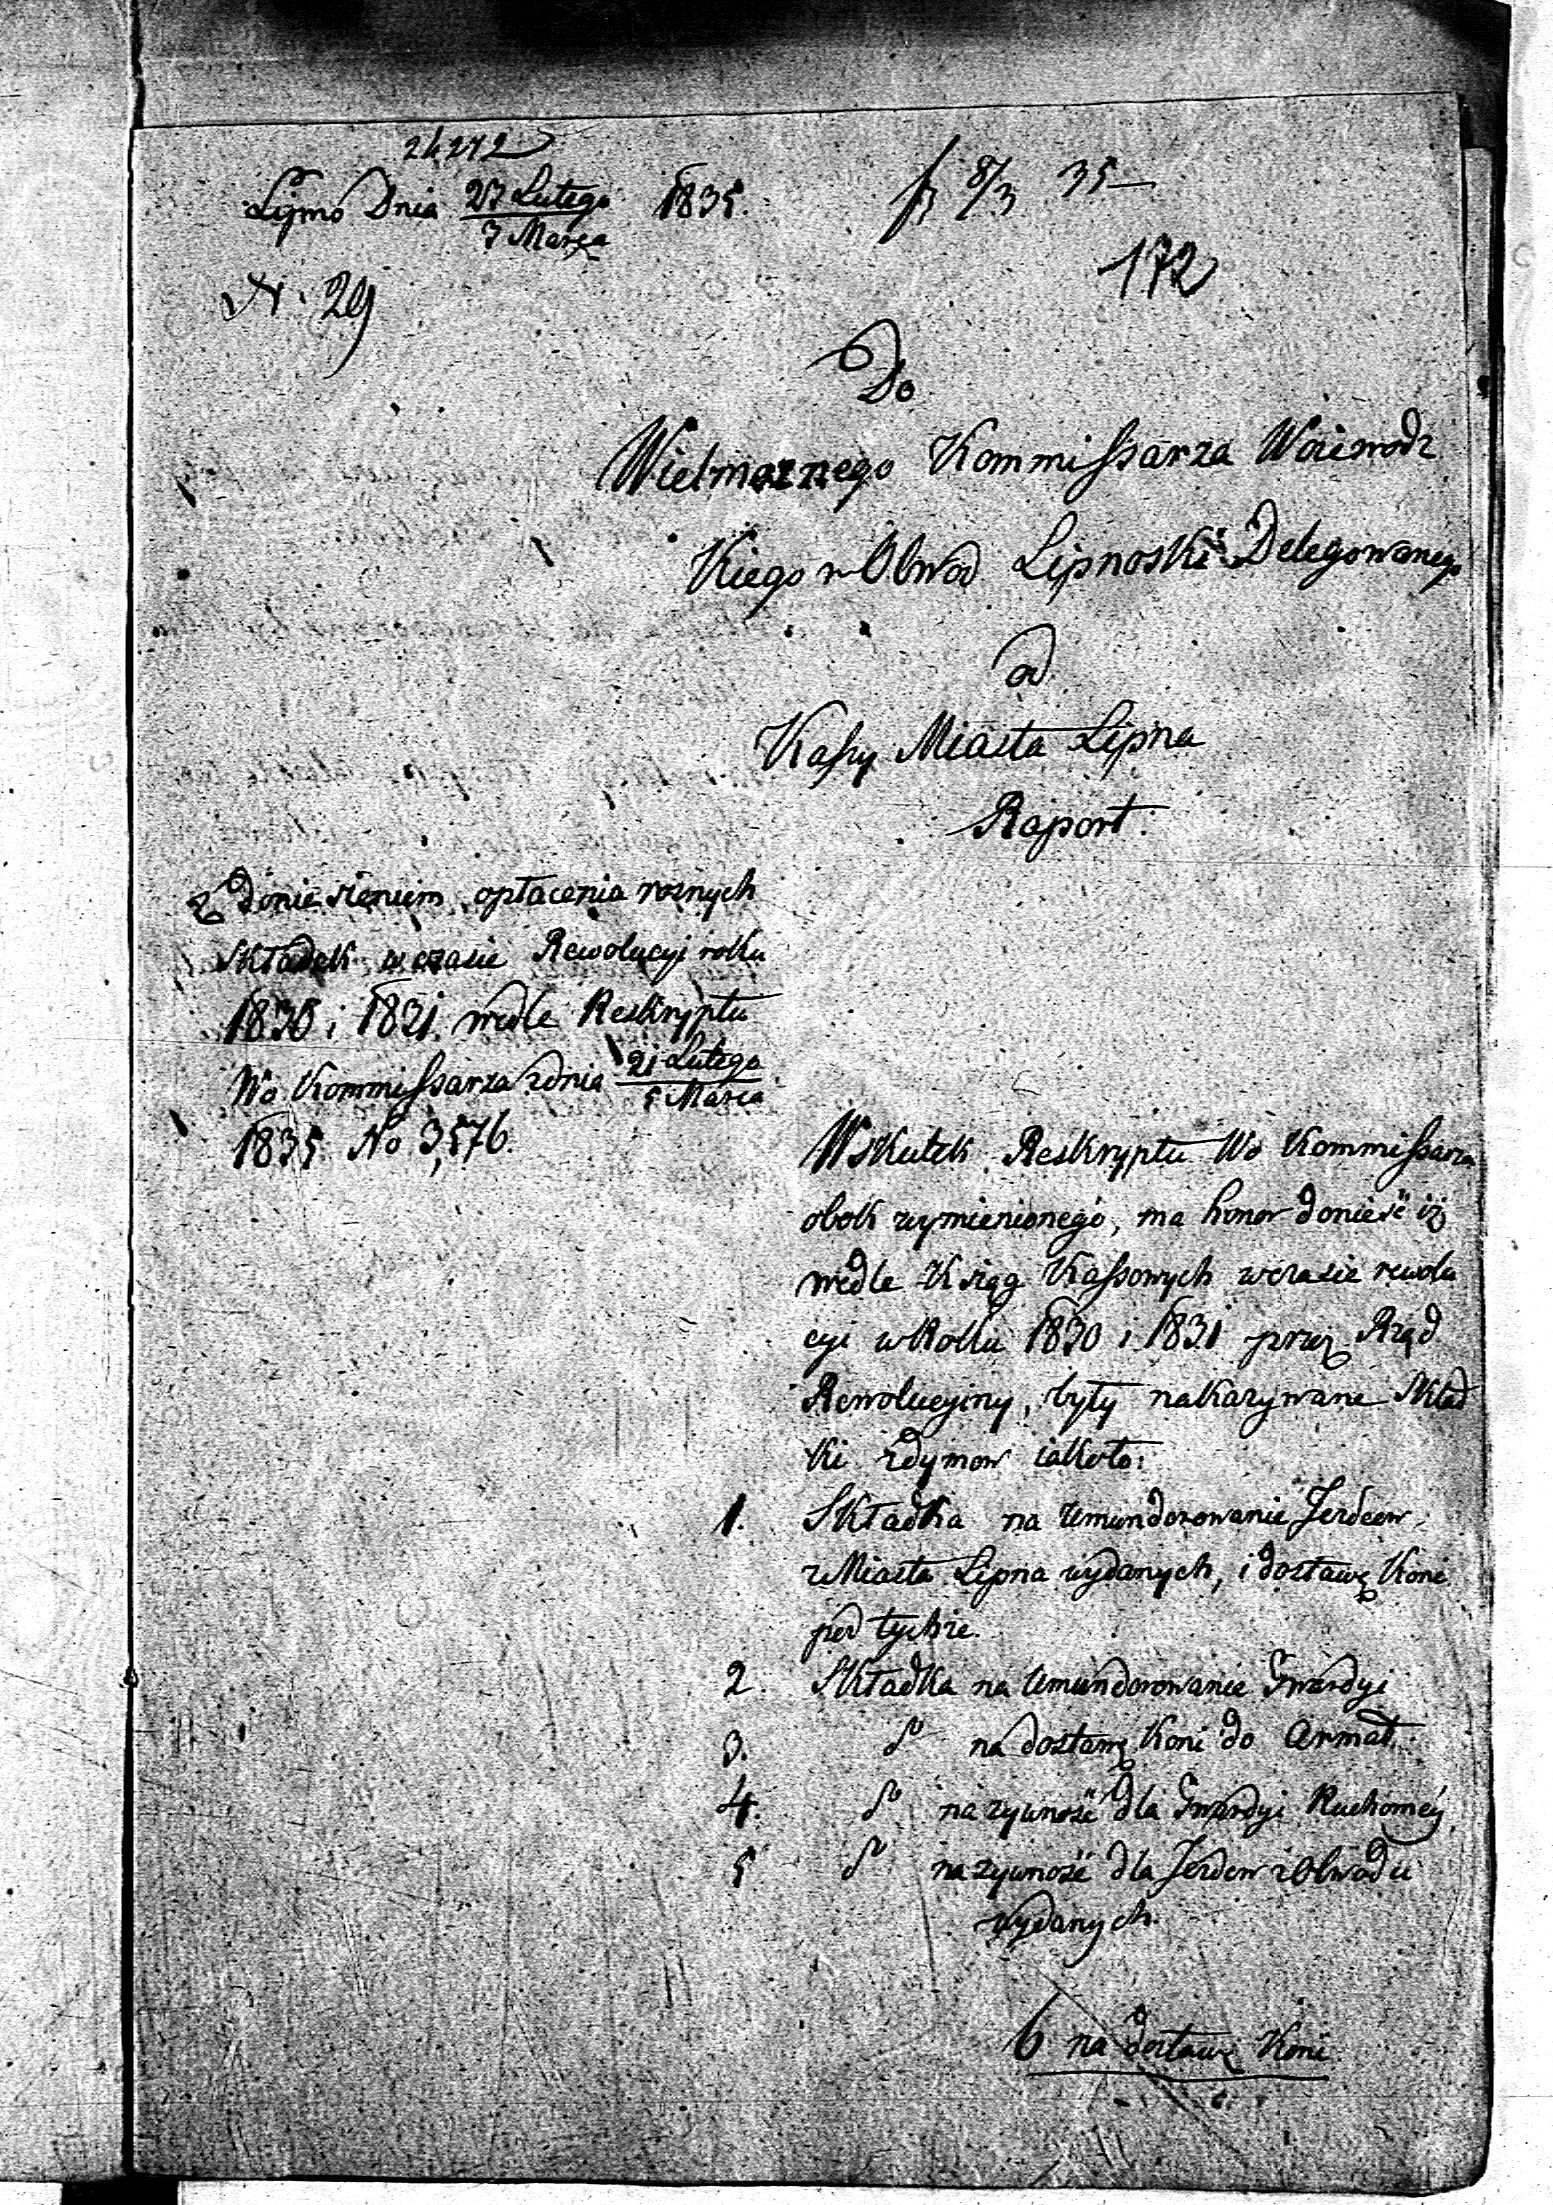 24272
Lipno Dnia 27 Lutego 1835.
7 Marca
8/3 35
N. 29
172
Do
Wielmoznego Kommissarza Woiewodz
Kiego w Obwod Lipnoski Delegowanego
od
Kassy Miasta Lipna
Raport.
Z Doniesieniem opłacenia roznych
Składek w czasie Rewolucyi roku
1830 i 1831. wedle Reskryptu
Wo Kommissarza zdnia 21 Lutego
5 Marca
1835. No 3,576.
Wskutek Reskryptu Wo Kommissarza
obok wymienionego, ma honor donieść iż
wedle Xsiąg Kassowych wczasie rewolu
cyi w Roku 1830 i 1831 przez Rząd
Rewolucyiny, były nakazywane Skład
ki zdymow iakoto:
1. Składka na Umundorowanie Jezdcow
z Miasta Lipna wydanych, i dostawę Koni
pod tychże.
2. Składka na Umundorowanie Gwardyi
3. do na dostawę Koni do Armat
4. do na zywność dla Gwardyi Ruchomey
5 do na zywność dla Jezdcow z Obwodu
wydanych.
6 na dostawę Koni